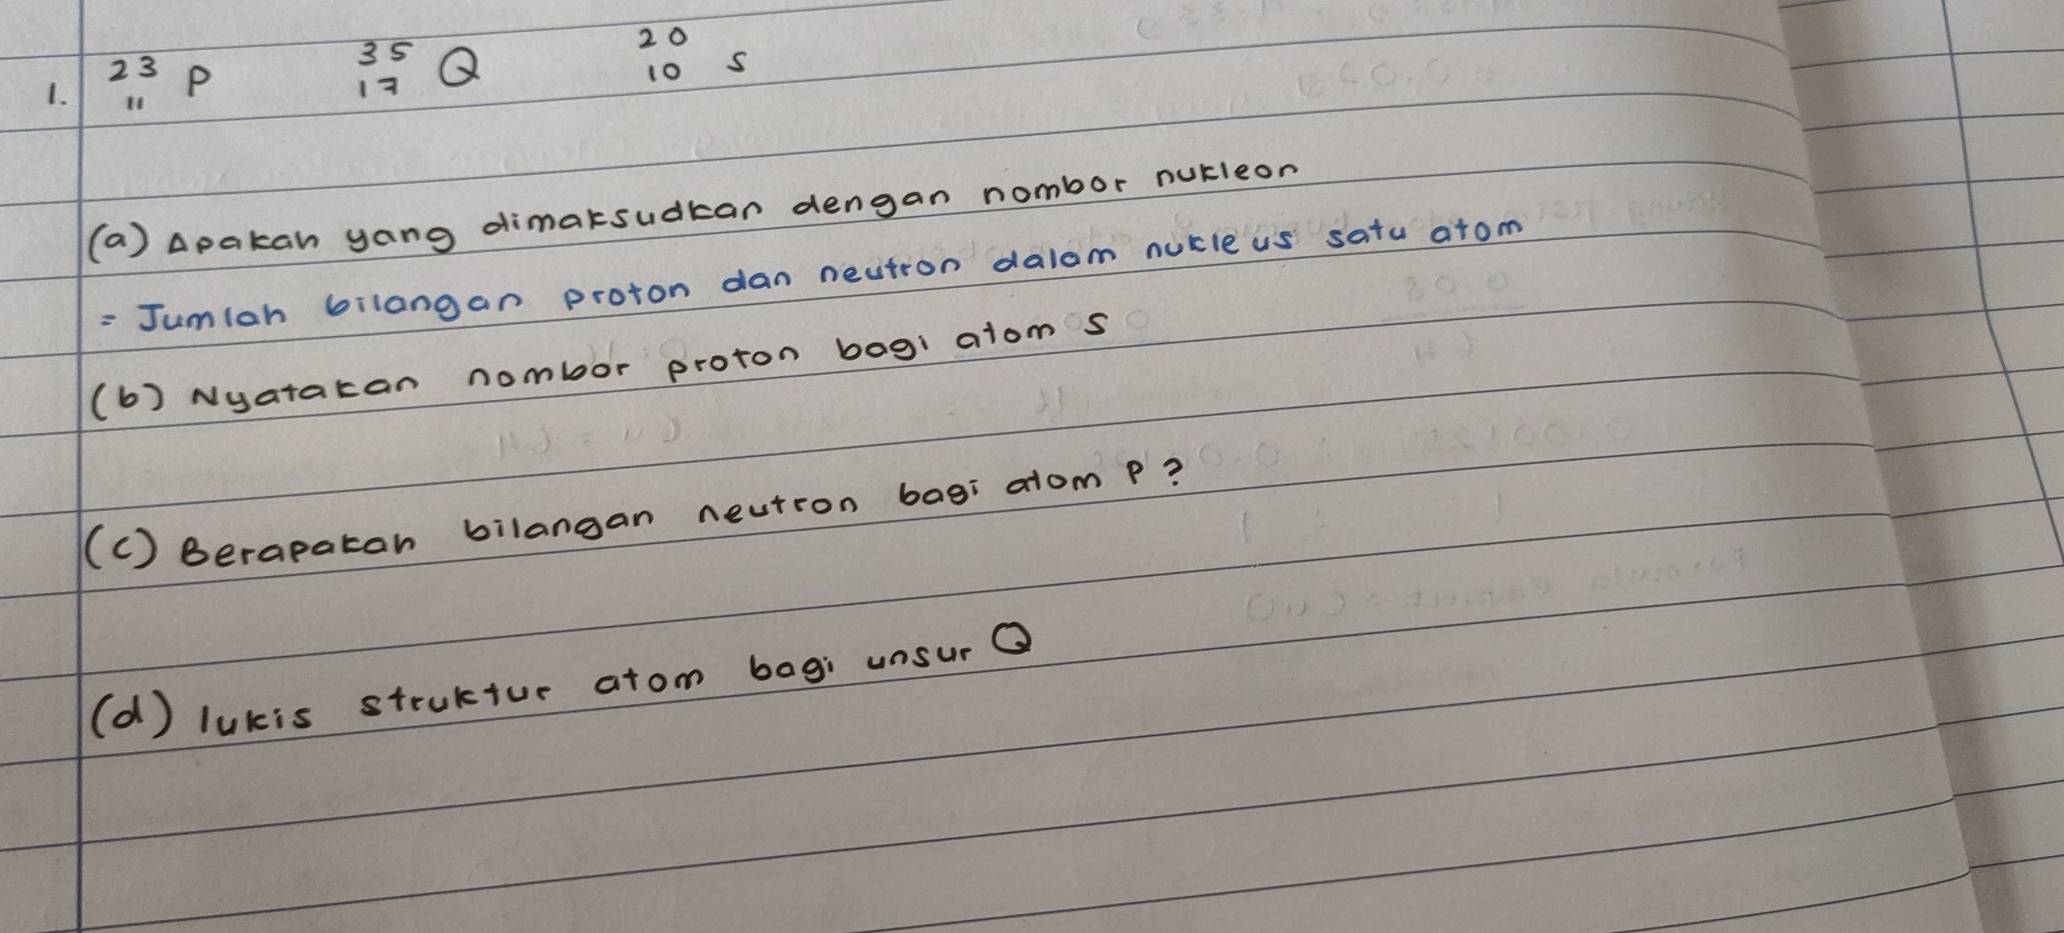 1. ²³₁₁ P ³⁵₁₇ Q ²⁰₁₀ S
(a) Apakah yang dimaksudkan dengan nombor nukleon
= Jumlah bilangan proton dan neutron dalam nukleus satu atom
(b) Nyatakan nombor proton bagi atom S
(c) Berapakah bilangan neutron bagi atom P?
(d) lukis struktur atom bagi unsur Q